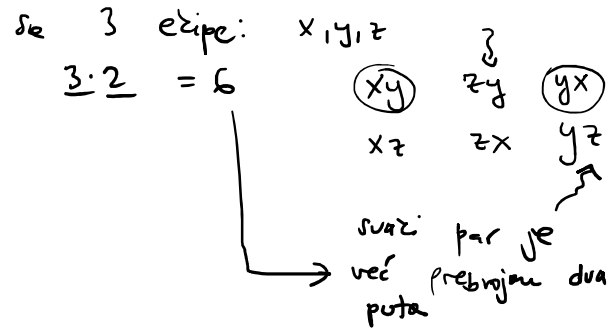 3 ekipe: x, y, z
3 · 2 = 6
xy zy yx
xz zx yz
svaki par je
već prebrojan dva
puta